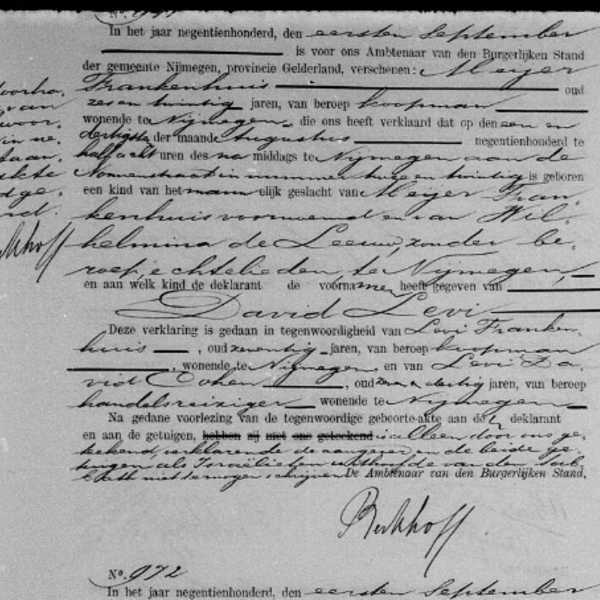 N°. 971
In het jaar negentienhonderd, den eersten September
is voor ons Ambtenaar van den Burgerlijken Stand
der gemeente Nijmegen, provincie Gelderland, verschenen: Meijer
Frankenhuis oud
zes en twintig jaren, van beroep koopman
wonende te Nijmegen, die ons heeft verklaard dat op den een en
dertigste der maand Augustus negentienhonderd te
half acht uren des na middags te Nijmegen aan de
Nonnenstraat in nummer twee en twintig is geboren
een kind van het mann elijk geslacht van Meijer Fran-
kenhuis voornoemd en van Wil-
helmina de Leeuw, zonder be-
roep, echtelieden, te Nijmegen,
en aan welk kind de deklarant de voornamen heeft gegeven van
David Levi
Deze verklaring is gedaan in tegenwoordigheid van Levi Franken-
huis, oud zeventig jaren, van beroep koopman
wonende te Nijmegen, en van Levi Da-
vid Cohen, oud dertig jaren, van beroep
handelsreiziger wonende te Nijmegen
Na gedane voorlezing van de tegenwoordige geboorte-akte aan de deklarant
en aan de getuigen, hebben zij met ons geteekend is alleen door ons ge-
teekend, verklarende de aangever en de beide ge-
tuigen als Israëlieten uit hoofde van den Sab-
bath niet te mogen schrijven. De Ambtenaar van den Burgerlijken Stand,
Berkhoff
N°. 972
In het jaar negentienhonderd, den eersten September